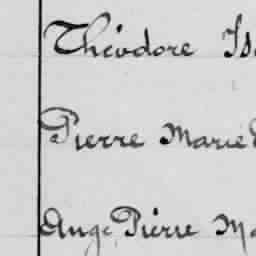 Théodore Is
Pierre Marie
Ange Pierre Ma